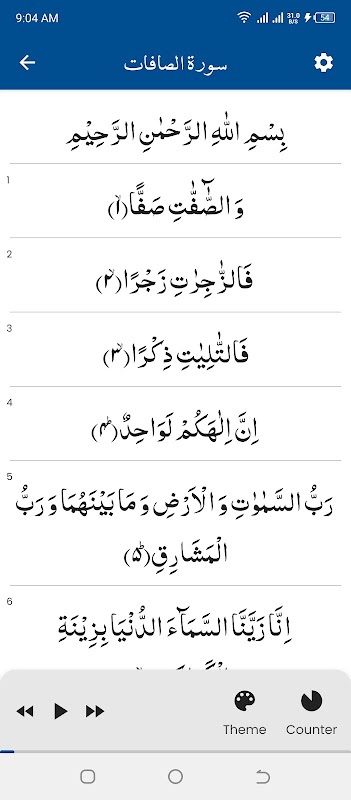 9:04 AM 31.0 B/S 54
سورة الصافات
بِسْمِ اللّٰهِ الرَّحْمٰنِ الرَّحِيْمِ
1
وَالصّٰٓفّٰتِ صَفًّا(۱ۙ)
2
فَالزّٰجِرٰتِ زَجْرًا(۲ۙ)
3
فَالتّٰلِيٰتِ ذِكْرًا(۳ۙ)
4
اِنَّ اِلٰهَكُمْ لَوَاحِدٌ(۴ؕ)
5
رَبُّ السَّمٰوٰتِ وَالْاَرْضِ وَمَا بَيْنَهُمَا وَرَبُّ
الْمَشَارِقِ(۵ؕ)
6
اِنَّا زَيَّنَّا السَّمَآءَ الدُّنْيَا بِزِيْنَةِ
Theme Counter